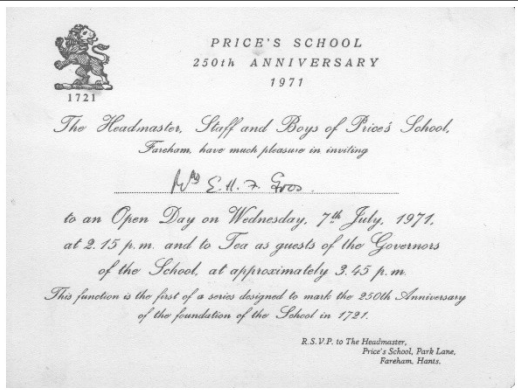 PRICE'S SCHOOL
250th ANNIVERSARY
1971
1721
The Headmaster, Staff and Boys of Price's School,
Fareham, have much pleasure in inviting
E. H. F.
to an Open Day on Wednesday, 7th July, 1971,
at 2.15 p.m. and to Tea as guests of the Governors
of the School, at approximately 3.45 p.m.
This function is the first of a series designed to mark the 250th Anniversary
of the foundation of the School in 1721.
R.S.V.P. to The Headmaster,
Price's School, Park Lane,
Fareham, Hants.